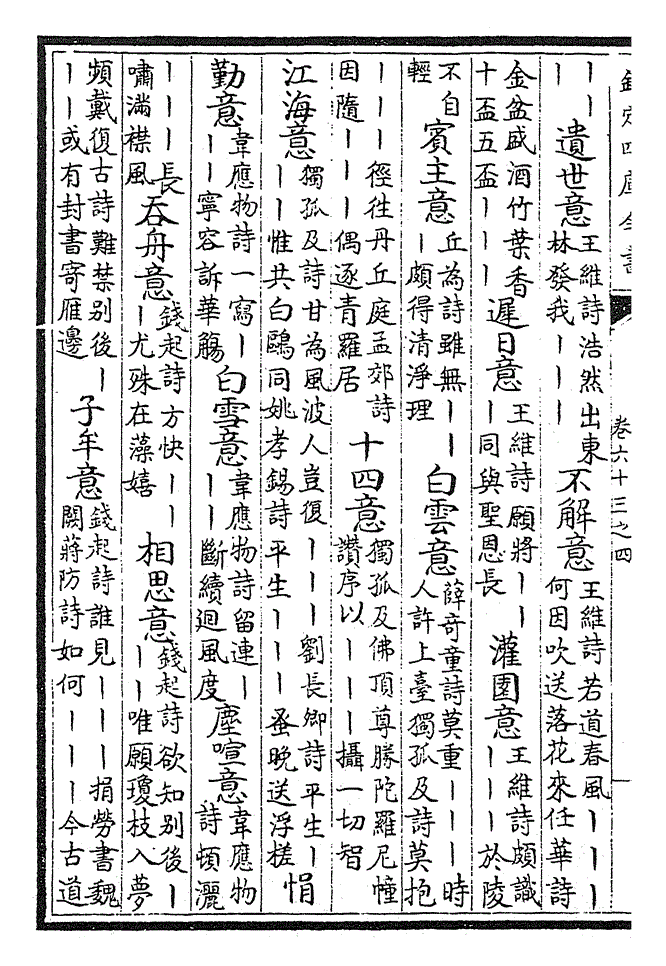 欽定四庫全書
卷六十三之四
一
｜｜
｜
遺世意
王維詩浩然出東
林發我｜｜｜
不解意
王維詩若道春風｜｜｜
何因吹送落花來任華詩
金盆盛酒竹葉香
十盃五盃｜｜｜
遲日意
王維詩願將｜｜
｜同與聖恩長
灌園意
王維詩頗識
｜｜｜於陵
不自
輕
賓主意
丘為詩雖無｜｜
｜頗得清淨理
白雲意
薛奇童詩莫重｜｜｜時
人許上臺獨孤及詩莫抱
｜｜｜徑往丹丘庭孟郊詩
因隨｜｜｜偶逐青羅居
十四意
獨孤及佛頂尊勝陀羅尼幢
讚序以｜｜｜攝一切智
江海意
獨孤及詩甘為風波人豈復｜｜｜劉長卿詩平生｜
｜｜惟共白鷗同姚孝錫詩平生｜｜｜蚤晚送浮槎
悁
勤意
韋應物詩一寫｜
｜寧容訴華觴
白雪意
韋應物詩留連｜
｜｜斷續迴風度
塵喧意
韋應物
詩頓灑
｜｜｜長
嘯滿襟風
吞舟意
錢起詩方快｜｜
｜尤殊在藻嬉
相思意
錢起詩欲知別後｜
｜｜唯願瓊枝入夢
頻戴復古詩難禁別後｜
｜｜或有封書寄雁邊
子牟意
錢起詩誰見｜｜｜捐勞書魏
闕蔣防詩如何｜｜｜今古道